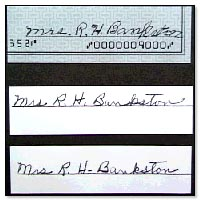 Mrs. R. H Bankston
552⑈ ⑈0000009000⑈
Mrs R. H. Bankston
Mrs R H- Bankston